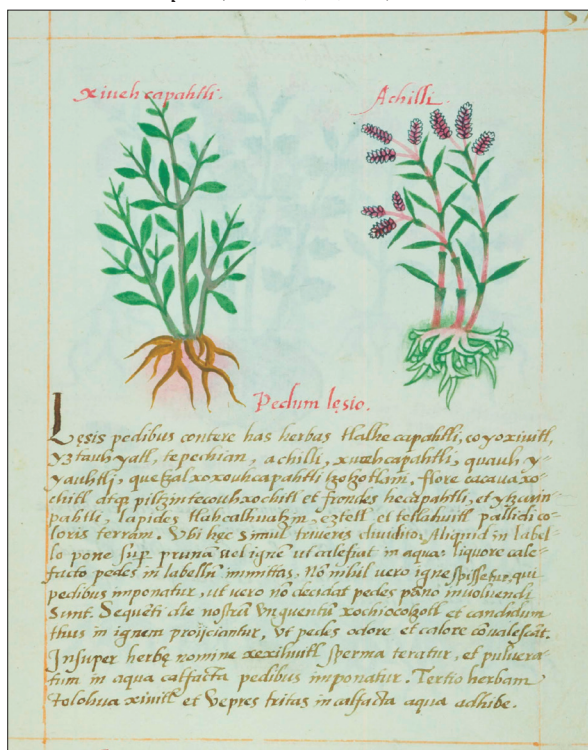 xiuehcapahtli.
Achilli.
Pedum lęsio.
Lęsis pedibus contere has herbas tlalhecapahtli, coyoxiuitl,
yztauhyatl, tepechian, achilli, xiuehcapahtli, quauhy-
yauhtli, quetzalxoxouhcapahtli tzotzotlani. flore cacauaxo-
chitl atq piltzintecouhxochitl et frondes hecapahtli, et ytzcuin-
pahtli, lapides tlahcalhuatzin, eztetl et tetlahuitl pallidi co-
loris terram. Vbi hęc simul triueres diuidito, Aliquid in label-
lo pone sup prunā uel ignē ut calefiat in aqua: liquore cale-
facto pedes in labellū immittas, Nō nihil vero igne spissetur, qui
pedibus imponatur, ut vero nō decidat pedes pāno inuoluendi
sunt. Sequēti die nostrū vnguentū xochiocotzotl et candidum
thus in ignem proijciantur, Vt pedes odore et calore cōualescāt.
Insuper herbę nomine xexihuitl sperma teratur, et puluera-
tum in aqua calfacta pedibus imponatur. Tertio herbam
Tolohua xiuitl et Vepres tritas in calfacta aqua adhibe.